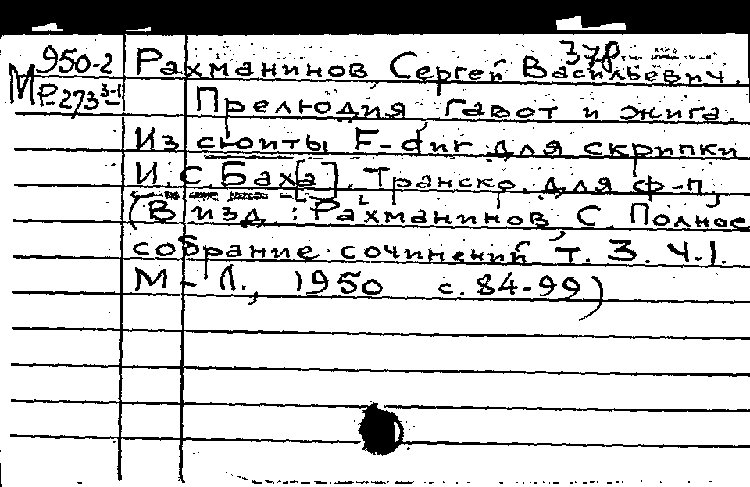 378
950-2 Рахманинов, Сергей Васильевич.
М Р-273 3-1 Прелюдия, гавот и жига.
Из сюиты F-dur для скрипки
И. С. Бах[а]. Транскр. для ф-п,
(В изд.: Рахманинов, С. Полное
собрание сочинений т. 3. ч.1.
М - Л., 1950 с. 84-99)